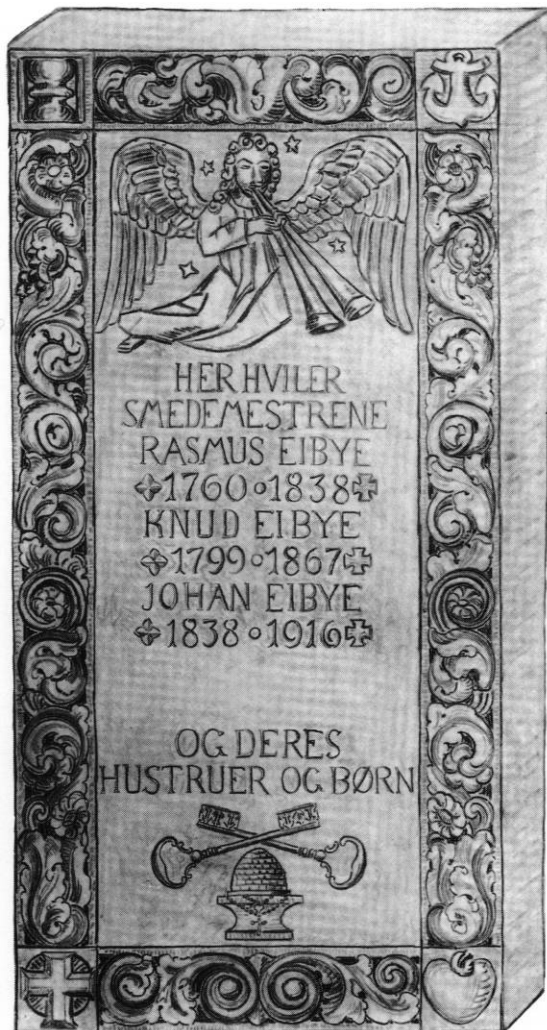 HER HVILER
SMEDEMESTRENE
RASMUS EIBYE
1760 o 1838
KNUD EIBYE
1799 o 1867
JOHAN EIBYE
1838 o 1916
OG DERES
HUSTRUER OG BØRN